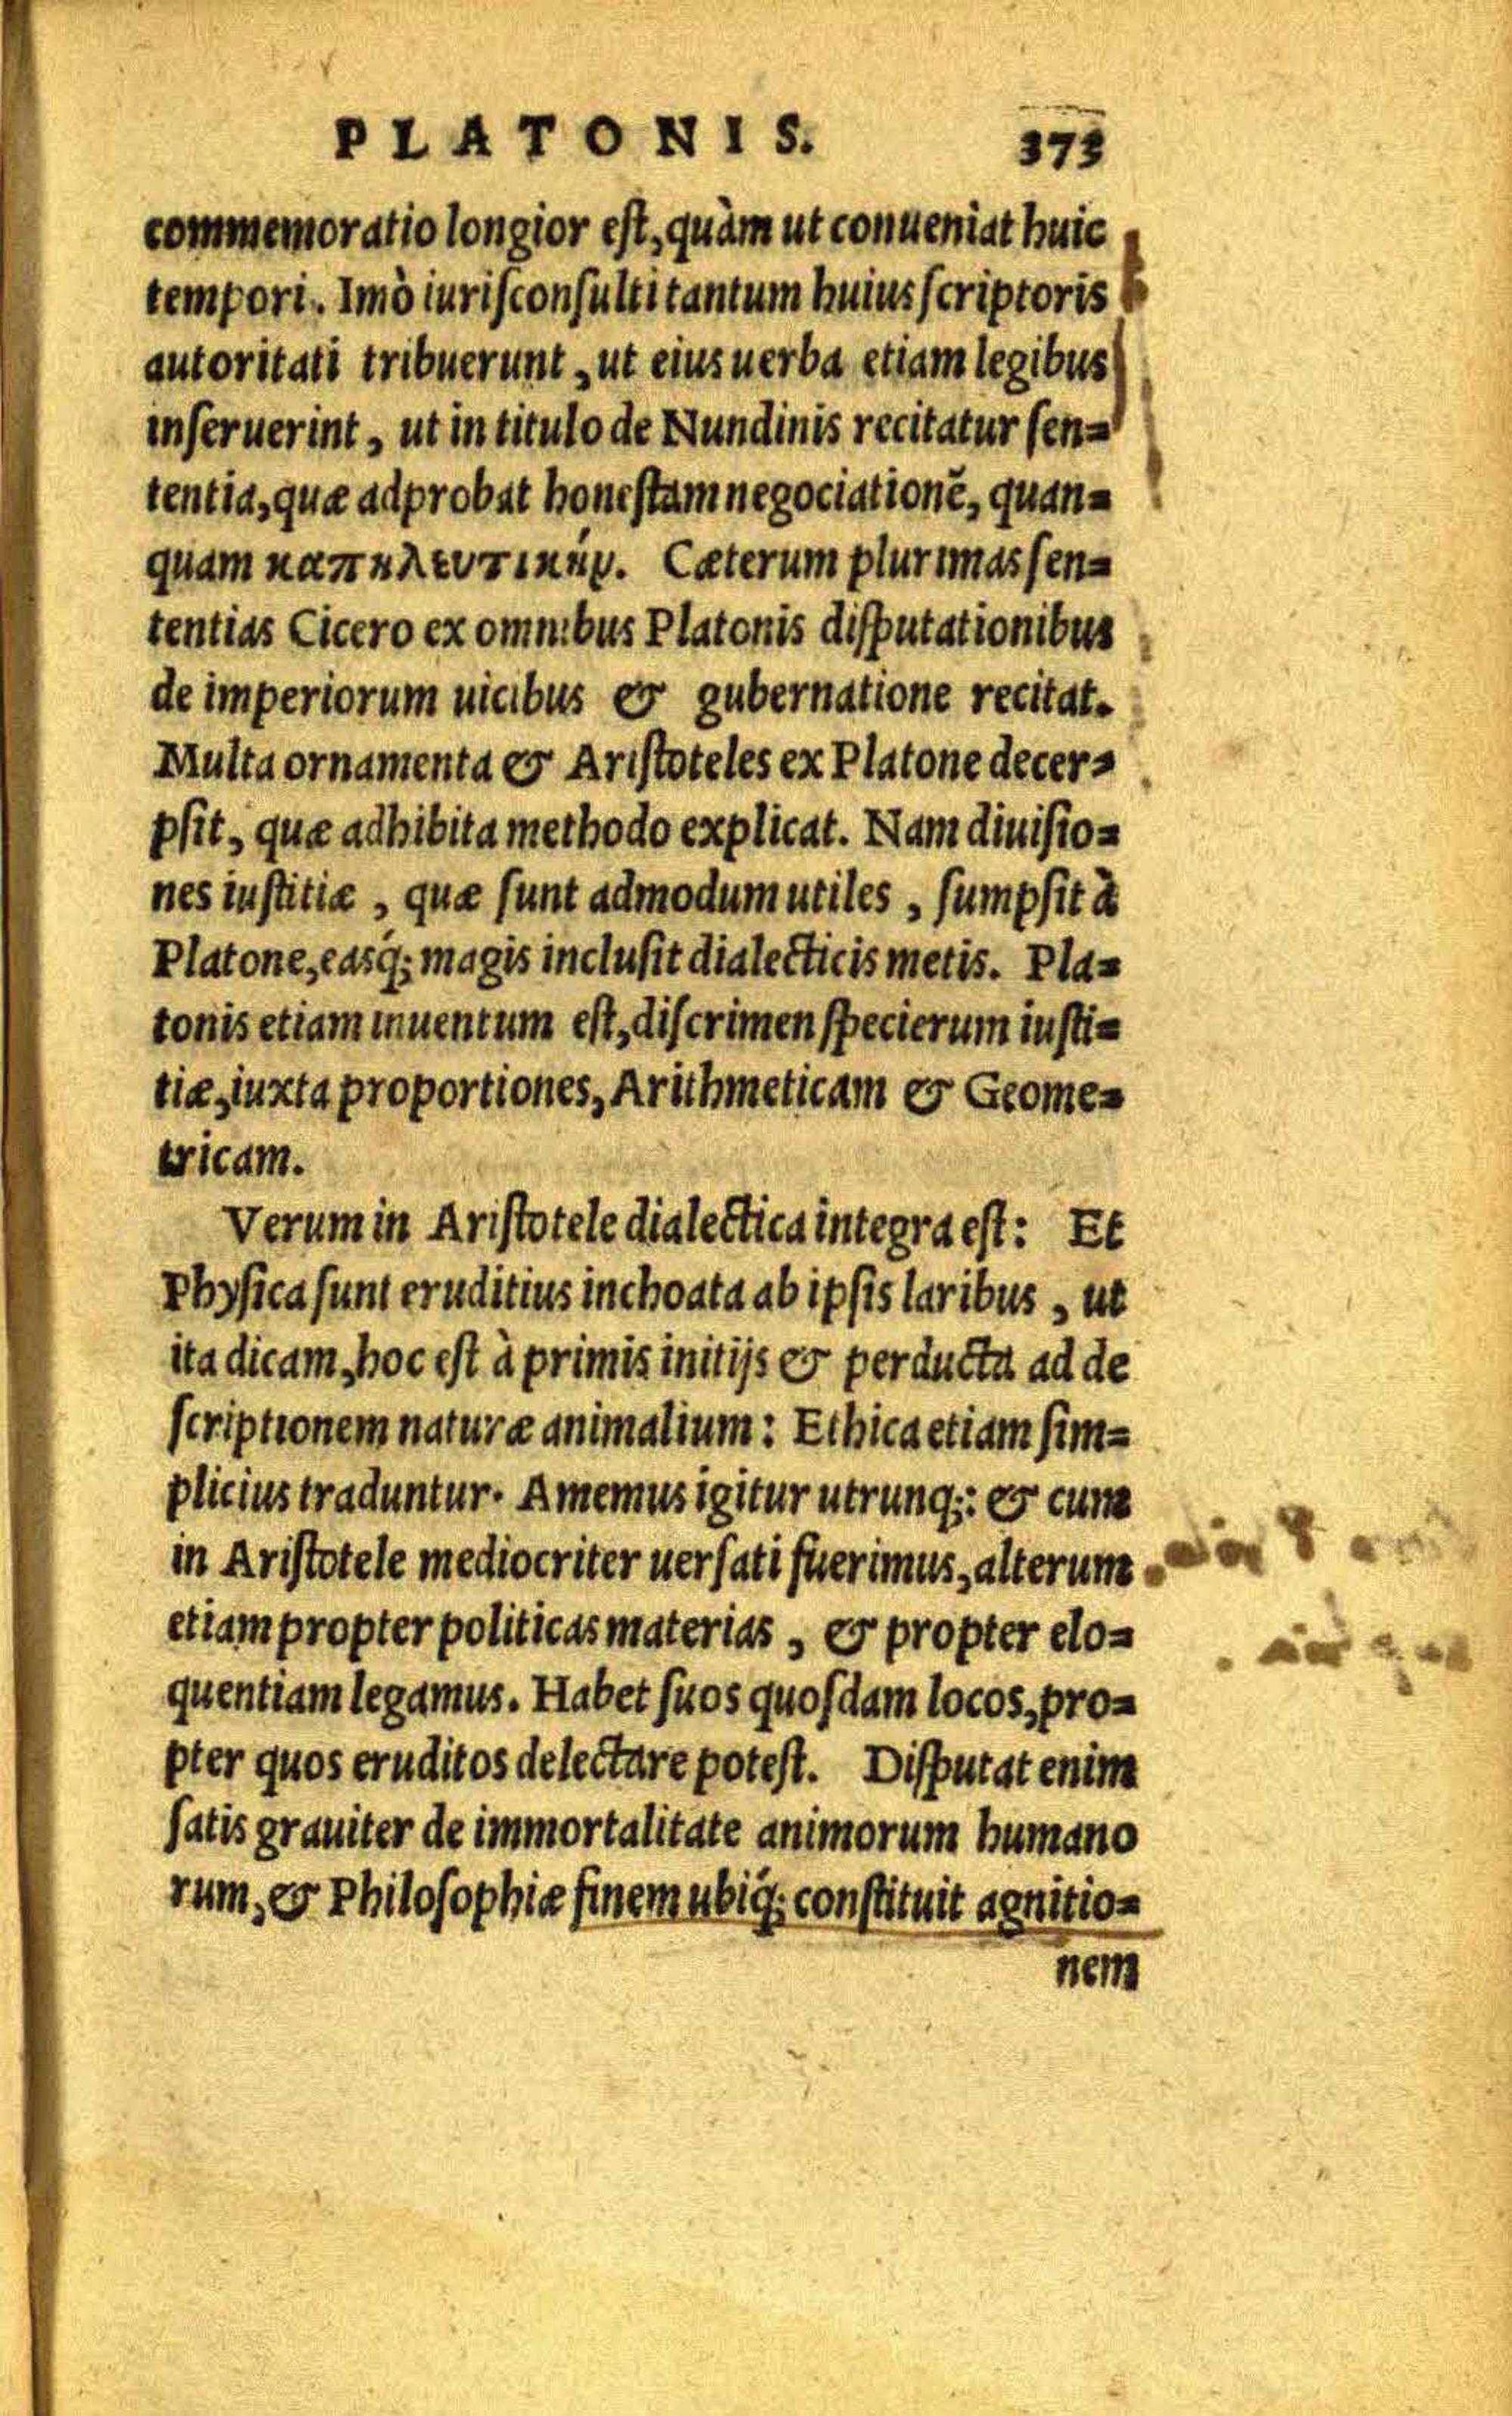 PLATONIS. 373
commemoratio longior eſt, quàm ut conueniat huic
tempori. Imò iuriſconſulti tantum huius ſcriptoris
autoritati tribuerunt, ut eius uerba etiam legibus
inſeruerint, ut in titulo de Nundinis recitatur ſen-
tentia, quæ adprobat honeſtam negociationẽ, quan-
quam καπηλευτικήν. Cæterum plurimas ſen-
tentias Cicero ex omnibus Platonis diſputationibus
de imperiorum uicibus & gubernatione recitat.
Multa ornamenta & Ariſtoteles ex Platone decer-
pſit, quæ adhibita methodo explicat. Nam diuiſio-
nes iuſtitiæ, quæ ſunt admodum utiles, ſumpſit à
Platone, easq́; magis incluſit dialecticis metis. Pla-
tonis etiam inuentum eſt, diſcrimen ſpecierum iuſti-
tiæ, iuxta proportiones, Arithmeticam & Geome-
tricam.
Verum in Ariſtotele dialectica integra eſt: Et
Phyſica ſunt eruditius inchoata ab ipſis laribus, ut
ita dicam, hoc eſt à primis initijs & perducta ad de
ſcriptionem naturæ animalium: Ethica etiam ſim-
plicius traduntur. Amemus igitur utrunq;: & cum
in Ariſtotele mediocriter uerſati fuerimus, alterum
etiam propter politicas materias, & propter elo-
quentiam legamus. Habet ſuos quoſdam locos, pro-
pter quos eruditos delectare poteſt. Diſputat enim
ſatis grauiter de immortalitate animorum humano
rum, & Philoſophiæ finem ubiq́; conſtituit agnitio-
nem